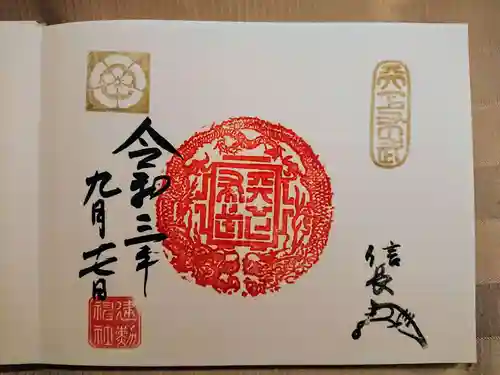 天下布武
信長
天下布武
令和三年
九月十七日
建勲
神社